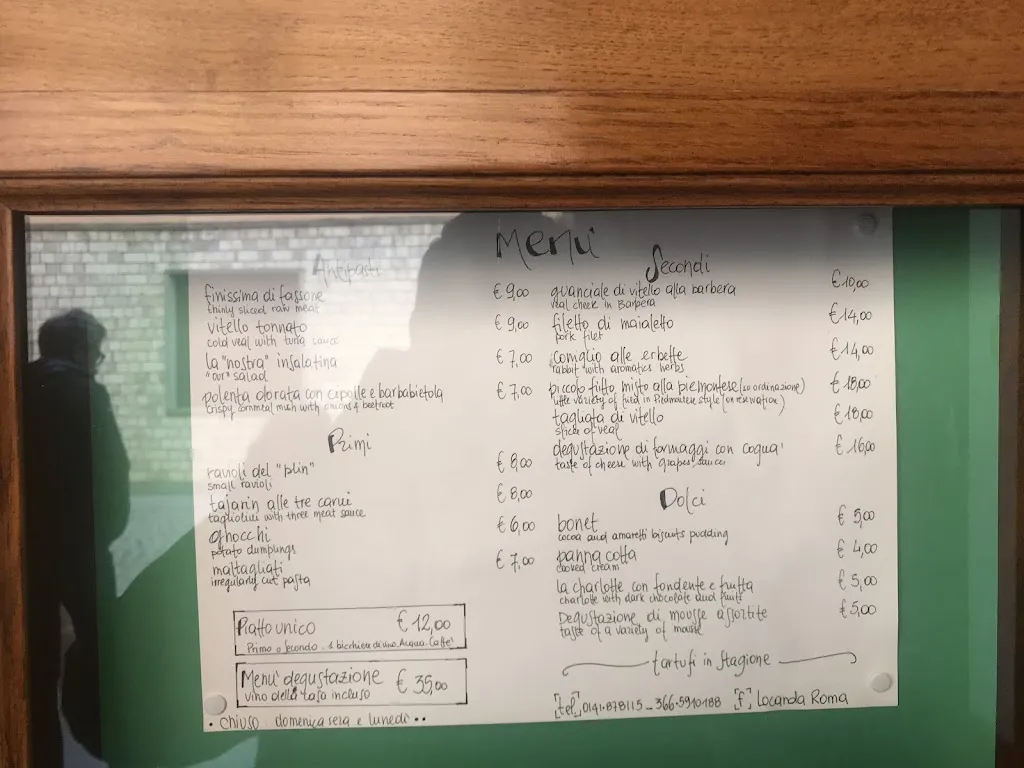 Menù
Antipasti
finissima di fassone € 9,00
thinly sliced raw meat
vitello tonnato € 9,00
cold veal with tuna sauce
la "nostra" insalatina € 7,00
"our" salad
polenta dorata con cipolle e barbabietola € 7,00
crispy cornmeal mush with onions & beetroot
Primi
ravioli del "plin" € 8,00
small ravioli
tajarin alle tre carni € 8,00
tagliolini with three meat sauce
gnocchi € 6,00
potato dumplings
maltagliati € 7,00
irregularly cut pasta
Piatto unico € 12,00
Primo o Secondo . 1 bicchiere di vino. Acqua. Caffè
Menù degustazione € 35,00
vino della casa incluso
• chiuso : domenica sera e lunedì ••
Secondi
guanciale di vitello alla barbera € 10,00
veal cheek in Barbera
filetto di maialetto € 14,00
pork filet
coniglio alle erbette € 14,00
rabbit with aromatics herbs
piccolo fritto misto alla piemontese (su ordinazione) € 18,00
little variety of fried in Piedmontese style (on reservation)
tagliata di vitello € 18,00
slice of veal
degustazione di formaggi con cognà € 16,00
taste of cheese with grapes sauces
Dolci
bonet € 5,00
cocoa and amaretti biscuits pudding
panna cotta € 4,00
cooked cream
la charlotte con fondente e frutta € 5,00
charlotte with dark chocolate and fruits
Degustazione di mousse assortite € 5,00
taste of a variety of mousse
tartufi in stagione
[tel] 0141.878115 - 366.5910188 [f] Locanda Roma